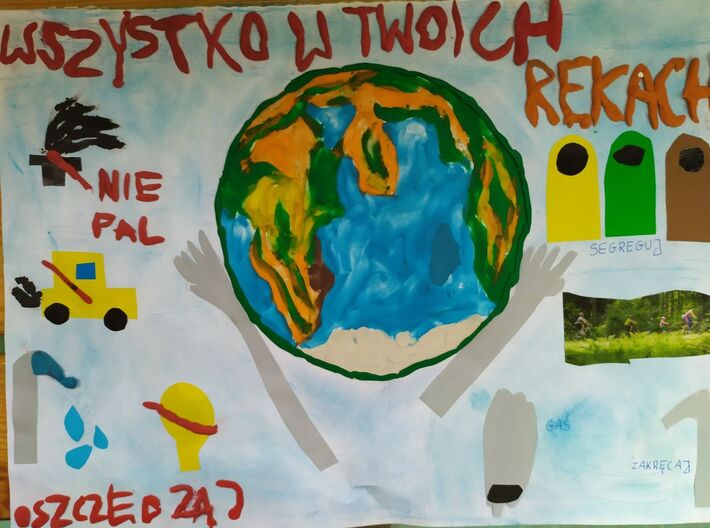 WSZYSTKO W TWOICH
RĘKACH
NIE
PAL
SEGREGUJ
GAŚ
ZAKRĘCAJ
OSZCZĘDZAJ